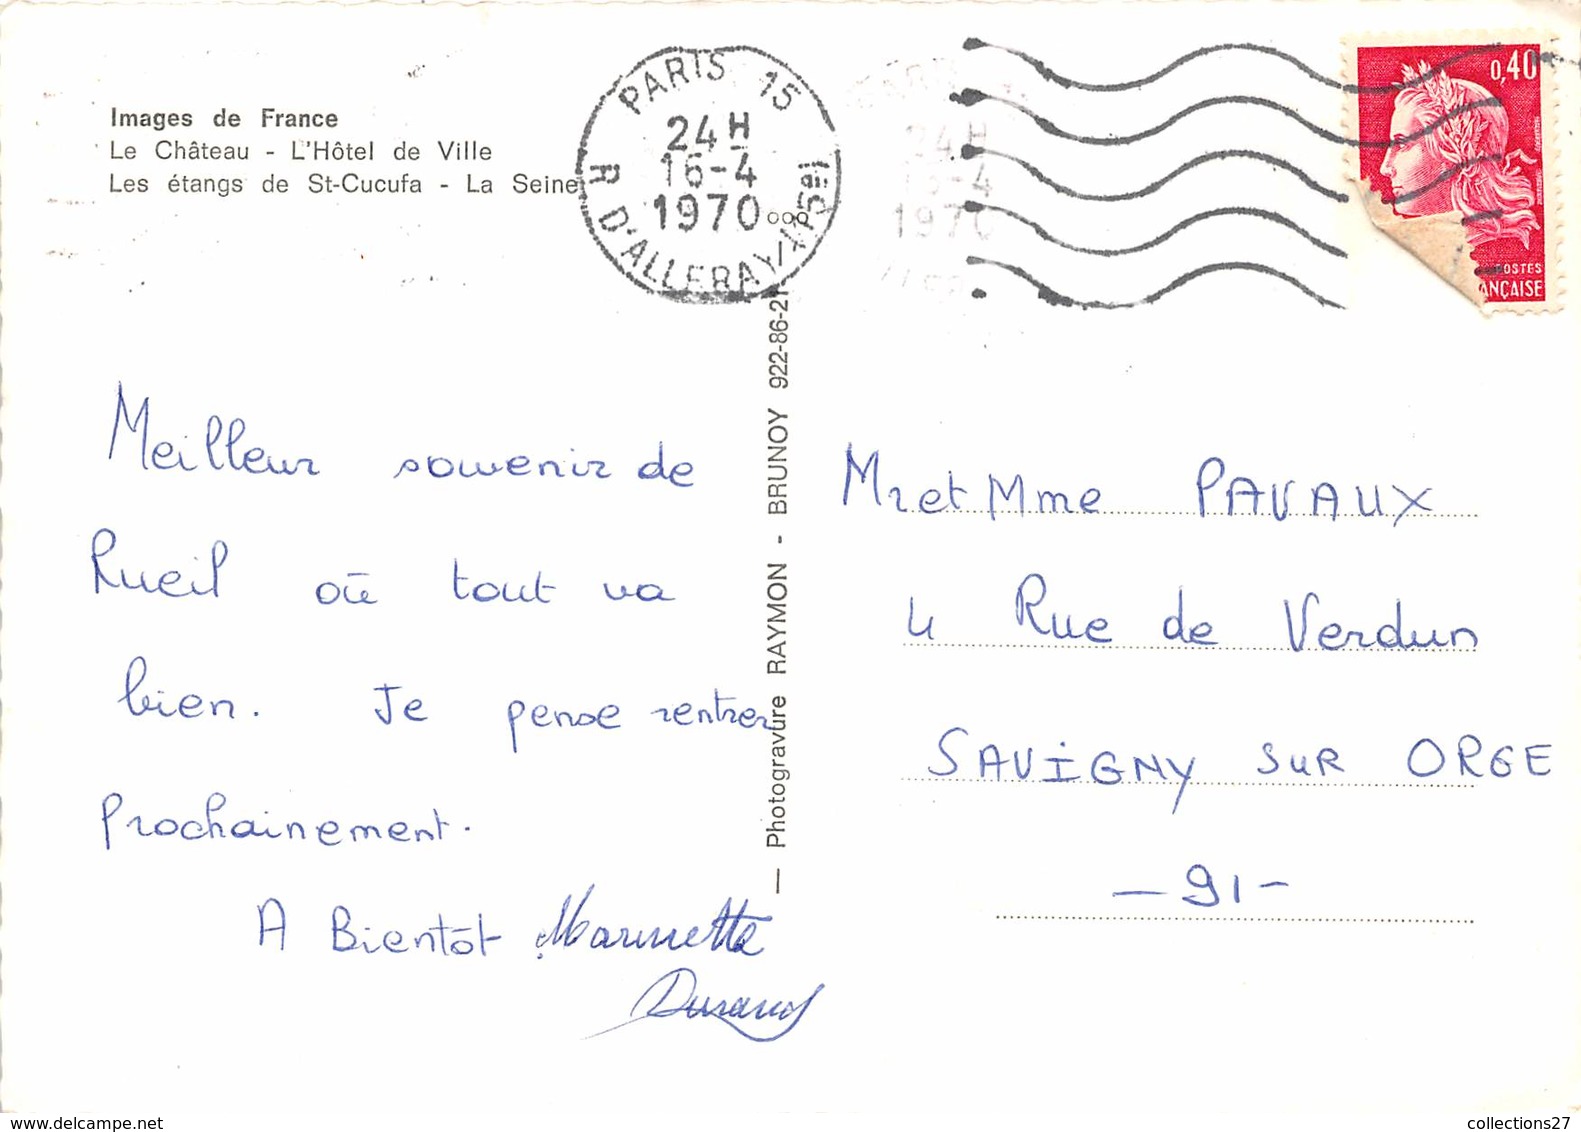 Images de France
Le Château - L'Hôtel de Ville
Les étangs de St-Cucufa - La Seine
PARIS 15
24 H
16-4
1970
R D'ALLERAY (15e)
24 H
16-4
1970
0,40
POSTES
ANÇAISE
Meilleur souvenir de
Rueil où tout va
bien. Je pense rentrer
Prochainement.
A Bientôt Marinette
Durand
— Photogravure RAYMON - BRUNOY 922-86-21
Mr et Mme PAVAUX
4 Rue de Verdun
SAVIGNY SUR ORGE
- 91 -
collections27